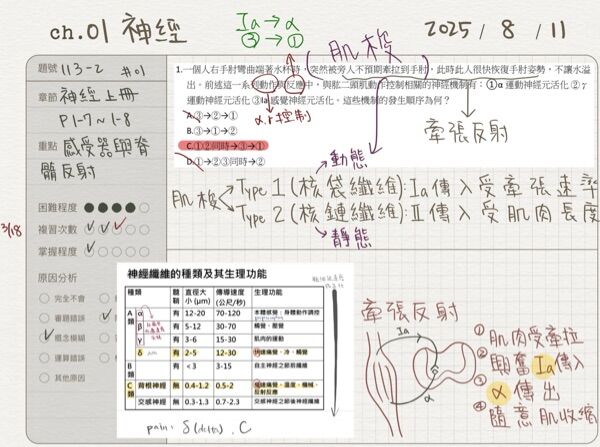 ch.01 神經
Ia → α
③ → ①
2025 / 8 / 11
題號 113-2 #01
章節 神經上冊
P1-7 ~ 1-8
重點 感受器與脊髓反射
困難程度
3/18
複習次數
掌握程度
原因分析
完全不會
審題錯誤
概念模糊
運算錯誤
其他原因
(肌梭)
1.一個人右手肘彎曲端著水杯時，突然被旁人不預期牽拉到手肘，此時此人很快恢復手肘姿勢，不讓水溢
出。前述這一系列動作與反應中，與肱二頭肌動作控制相關的神經機制有：①α 運動神經元活化 ②γ
運動神經元活化 ③Ia 感覺神經元活化，這些機制的發生順序為何？
A.③→②→①
B.③→①→②
C.①②同時→③→①
D.①→②③同時→②
α,γ控制
牽張反射
動態
肌梭
Type 1 (核袋纖維): Ia傳入受牽張速率
Type 2 (核鏈纖維): II傳入受肌肉長度
靜態
神經纖維的種類及其生理功能
種類 髓鞘 直徑大小 (μm) 傳導速度 (公尺/秒) 生理功能
A類 α 有 12-20 70-120 本體感覺、身體動作調控
β 有 5-12 30-70 觸覺、壓覺
γ 有 3-6 15-30 肌肉的運動
δ 有 2-5 12-30 快速痛覺、冷、觸覺
B類 有 <3 3-15 自主神經之節前纖維
C類 背根神經 無 0.4-1.2 0.5-2 慢速痛覺、溫度、機械、反射反應
交感神經 無 0.3-1.3 0.7-2.3 交感神經之節後神經纖維
pain: δ(delta), C
牽張反射
Ia
α
① 肌肉受牽拉
② 興奮Ia傳入
③ α傳出
④ 隨意肌收縮